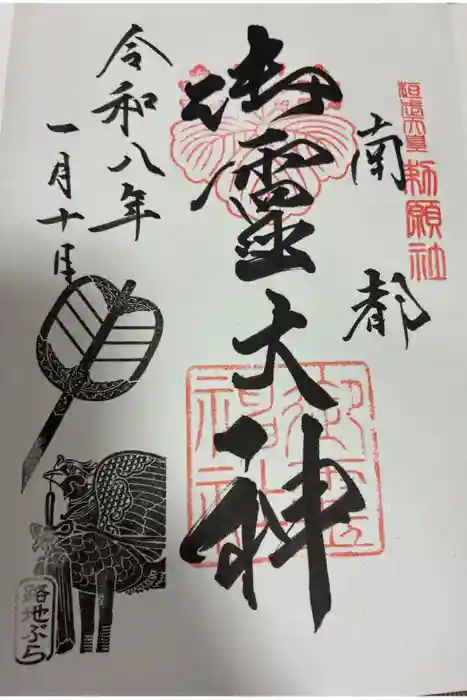 桓武天皇勅願社
南都
御霊大神
御霊神社
令和八年
一月十日
路地ぶら